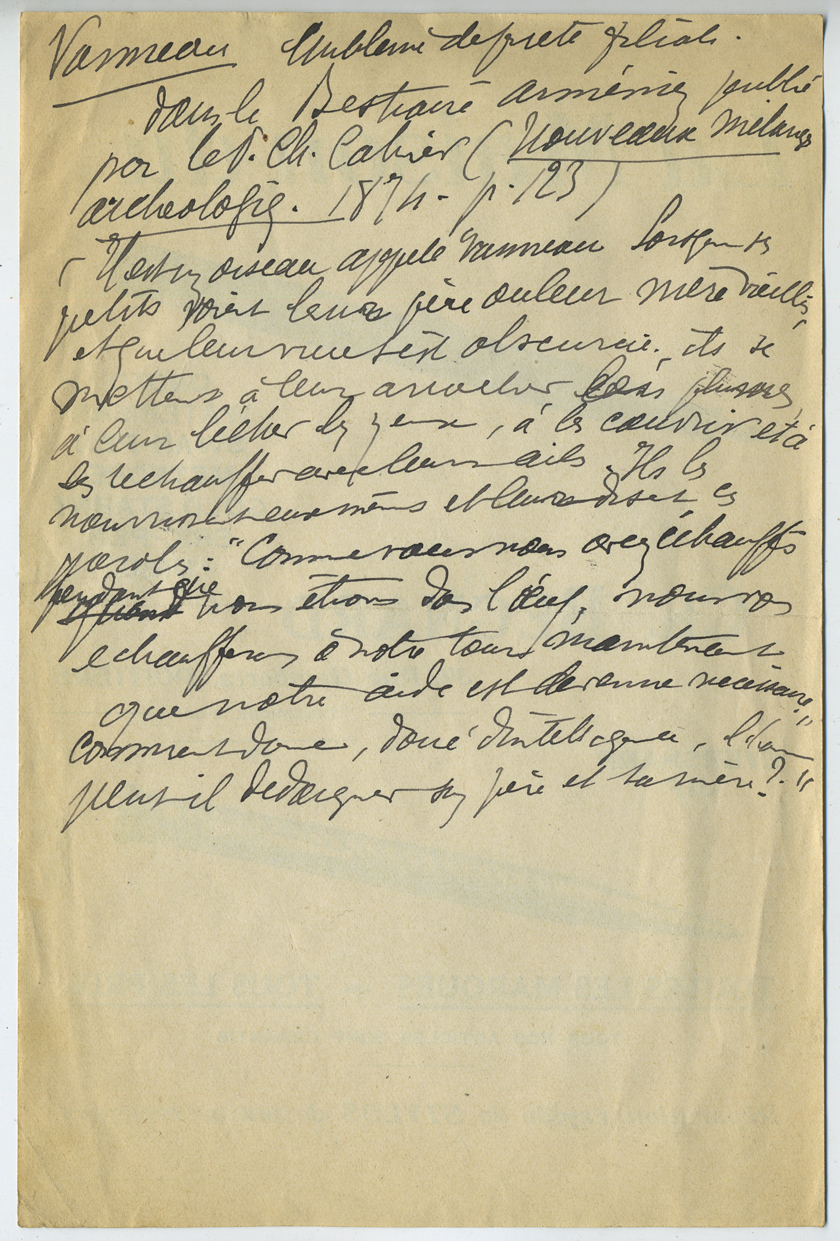 Vanneau Emblème de piété filiale.
dans le Bestiaire arménien publié
par le P. Ch. Cahier (Nouveaux mélanges
archeologiq. 1874 - p. 123)
( Il est un oiseau appelé vanneau Lorsque ses
petits voient leur père ou leur mère vieillis,
et que leur vue s'est obscurcie, ils se
mettent à leur arracher les plumes,
à leur lécher les yeux, à les couvrir et à
les rechauffer avec leurs ails. Ils les
nourrissent eux mêmes et leur disent ces
paroles : "Comme vous nous avez échauffés
pendant que nous étions dans l'œuf, nous vous
echauffons à notre tour, maintenant
que notre aide est devenue nécessaire."
Comment donc, doué d'intelligence, l'homme
peut-il dedaigner son père et sa mère ? "